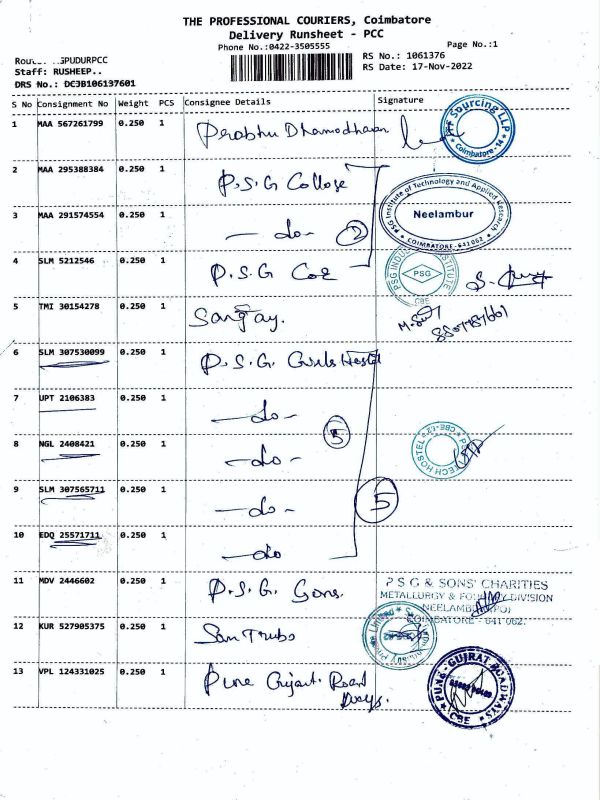 THE PROFESSIONAL COURIERS, Coimbatore
Delivery Runsheet - PCC
Phone No.:0422-3505555
Page No.:1
GPUDURPCC
RS No.: 1061376
Staff: RUSHEEP..
RS Date: 17-Nov-2022
DRS No.: DC3B106137601
S No Consignment No Weight PCS Consignee Details Signature
1 MAA 567261799 0.250 1 Prabhu Dhamodharan
Sourcing LLP
Coimbatore - 14
2 MAA 295388384 0.250 1 P.S.G College
PSG Institute of Technology and Applied Research
Neelambur
COIMBATORE - 641 062
3 MAA 291574554 0.250 1 - do - 2
4 SLM 5212546 0.250 1 P.S.G Coe
PSG
CBE
5 TMI 30154278 0.250 1
6 SLM 307530099 0.250 1 P.S.G. Girls Hostel
7 UPT 2106383 0.250 1 - do -
8 NGL 2408421 0.250 1 - do - 5
TECH HOSTEL
9 SLM 307565711 0.250 1 - do - 5
10 EDQ 25571711 0.250 1 - do
11 MDV 2446602 0.250 1 P.S.G. Sons.
P S G & SONS' CHARITIES
METALLURGY & FOUNDRY DIVISION
NEELAMBUR (PO)
COIMBATORE - 641 062.
12 KUR 527905375 0.250 1
13 VPL 124331025 0.250 1 Pune Gujarat Road
Ways.
PUNE - GUJRAT ROADWAYS
CBE